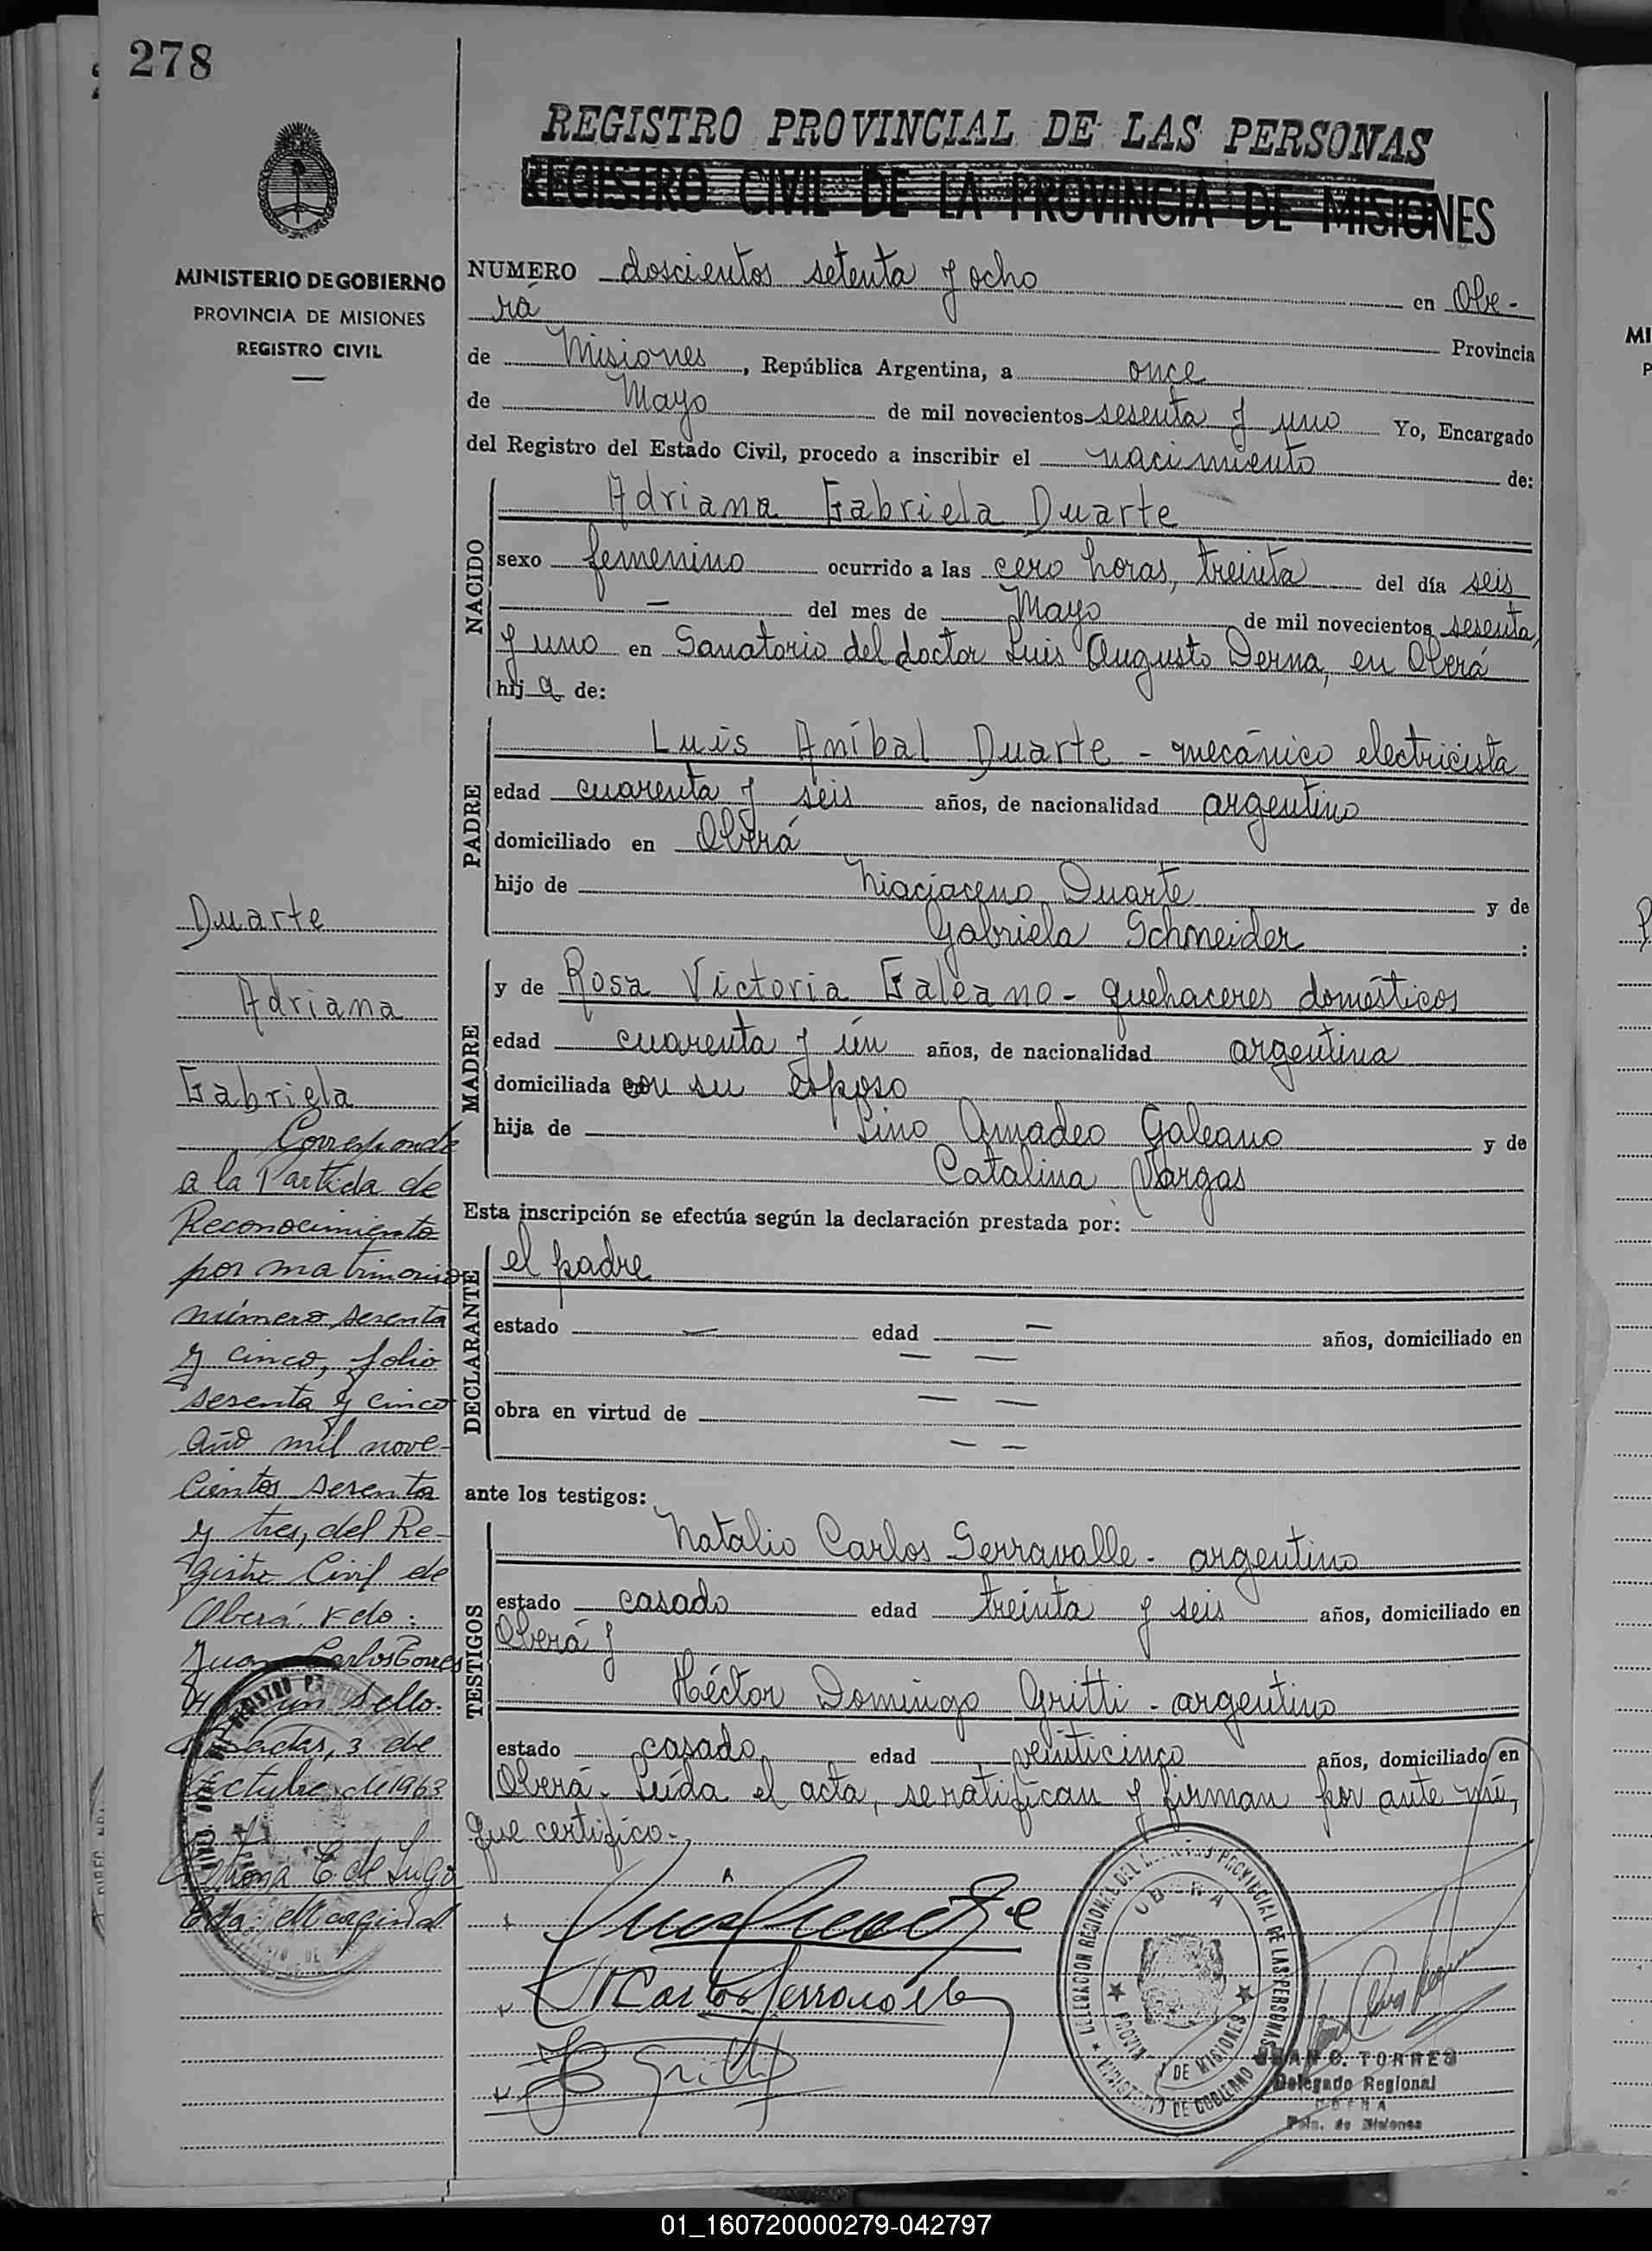 278
REGISTRO PROVINCIAL DE LAS PERSONAS
REGISTRO CIVIL DE LA PROVINCIA DE MISIONES
MINISTERIO DE GOBIERNO
PROVINCIA DE MISIONES
REGISTRO CIVIL
NUMERO doscientos setenta y ocho en Obe-
rá Provincia
de Misiones, República Argentina, a once
de Mayo de mil novecientos sesenta y uno Yo, Encargado
del Registro del Estado Civil, procedo a inscribir el nacimiento de:
NACIDO
Adriana Gabriela Duarte
sexo femenino ocurrido a las cero horas, treinta del día seis
— del mes de Mayo de mil novecientos sesenta
y uno en Sanatorio del doctor Luis Augusto Derna, en Oberá
hij a de:
PADRE
Luis Aníbal Duarte - mecánico electricista
edad cuarenta y seis años, de nacionalidad argentino
domiciliado en Oberá
hijo de Duarte y de
Gabriela Schneider :
MADRE
y de Rosa Victoria Galeano - quehaceres domésticos
edad cuarenta y un años, de nacionalidad argentina
domiciliada con su esposo
hija de Lino Amadeo Galeano y de
Catalina Vargas
Esta inscripción se efectúa según la declaración prestada por:
DECLARANTE
el padre
estado — edad — años, domiciliado en
— —
obra en virtud de — —
— —
ante los testigos:
TESTIGOS
Natalio Carlos Serravalle - argentino
estado casado edad treinta y seis años, domiciliado en
Oberá y
Héctor Domingo Gritti - argentino
estado casado edad veinticinco años, domiciliado en
Oberá. Leída el acta, se ratifican y firman por ante mí,
que certifico.-
Duarte
Adriana
Gabriela
Corresponde
a la Partida de
Reconocimiento
por matrimonio
número sesenta
y cinco, folio
sesenta y cinco
año mil nove-
cientos sesenta
y tres, del Re-
gistro Civil de
Oberá. Fdo:
Juan Carlos Torres
un sello.
Posadas, 3 de
Octubre de 1963
E. de Lugo
Marginal
DELEGACION REGIONAL DEL REGISTRO PROVINCIAL DE LAS PERSONAS
OBERA
PROVINCIA DE MISIONES
MINISTERIO DE GOBIERNO
JUAN C. TORRES
Delegado Regional
OBERA
Pcia. de Misiones
01_160720000279-042797